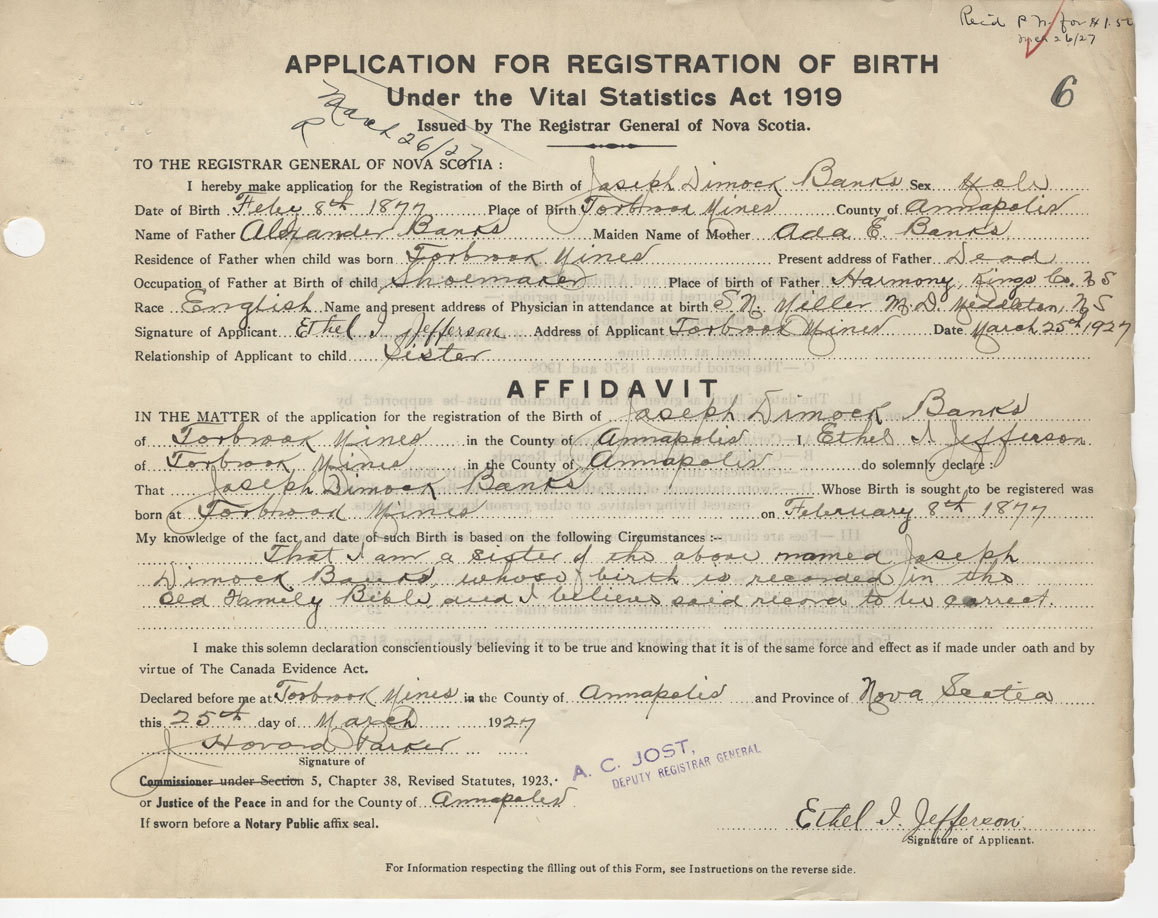 Rec'd P.N. for $1.50
Mch 26/27
APPLICATION FOR REGISTRATION OF BIRTH
6
Under the Vital Statistics Act 1919
March 26/27
Issued by The Registrar General of Nova Scotia.
TO THE REGISTRAR GENERAL OF NOVA SCOTIA :
I hereby make application for the Registration of the Birth of Joseph Dimock Banks Sex Male
Date of Birth Feby 8th 1877 Place of Birth Torbrook Mines County of Annapolis
Name of Father Alexander Banks Maiden Name of Mother Ada E. Banks
Residence of Father when child was born Torbrook Mines Present address of Father Dead
Occupation of Father at Birth of child Shoemaker Place of birth of Father Harmony, Kings Co. N S
Race English Name and present address of Physician in attendance at birth S. N. Miller M. D. Middleton, N S
Signature of Applicant Ethel I Jefferson Address of Applicant Torbrook Mines Date March 25th 1927
Relationship of Applicant to child Sister
AFFIDAVIT
IN THE MATTER of the application for the registration of the Birth of Joseph Dimock Banks
of Torbrook Mines in the County of Annapolis I, Ethel I Jefferson
of Torbrook Mines in the County of Annapolis do solemnly declare :
That Joseph Dimock Banks Whose Birth is sought to be registered was
born at Torbrook Mines on February 8th 1877
My knowledge of the fact and date of such Birth is based on the following Circumstances :—
That I am a sister of the above named Joseph
Dimock Banks, whose birth is recorded in the
Old Family Bible and I believe said record to be correct.
I make this solemn declaration conscientiously believing it to be true and knowing that it is of the same force and effect as if made under oath and by
virtue of The Canada Evidence Act.
Declared before me at Torbrook Mines in the County of Annapolis and Province of Nova Scotia
this 25th day of March 1927
J Howard Parker
Signature of
Commissioner under Section 5, Chapter 38, Revised Statutes, 1923.
or Justice of the Peace in and for the County of Annapolis
If sworn before a Notary Public affix seal.
A. C. JOST,
DEPUTY REGISTRAR GENERAL
Ethel I. Jefferson
Signature of Applicant.
For Information respecting the filling out of this Form, see Instructions on the reverse side.